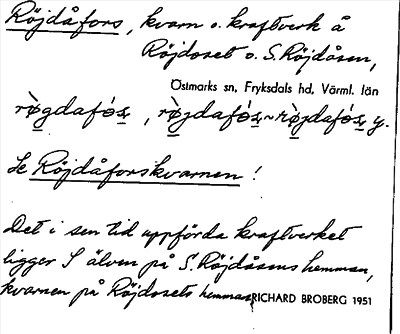 Röjdåfors, kvarn o. kraftverk å
Röjdoset o. S. Röjdåsen,
Östmarks sn, Fryksdals hd, Värml. län
Se Röjdåforskvarnen!
Det i sen tid uppförda kraftverket
ligger S älven på S. Röjdåsens hemman,
kvarnen på Röjdosets hemman.
RICHARD BROBERG 1951